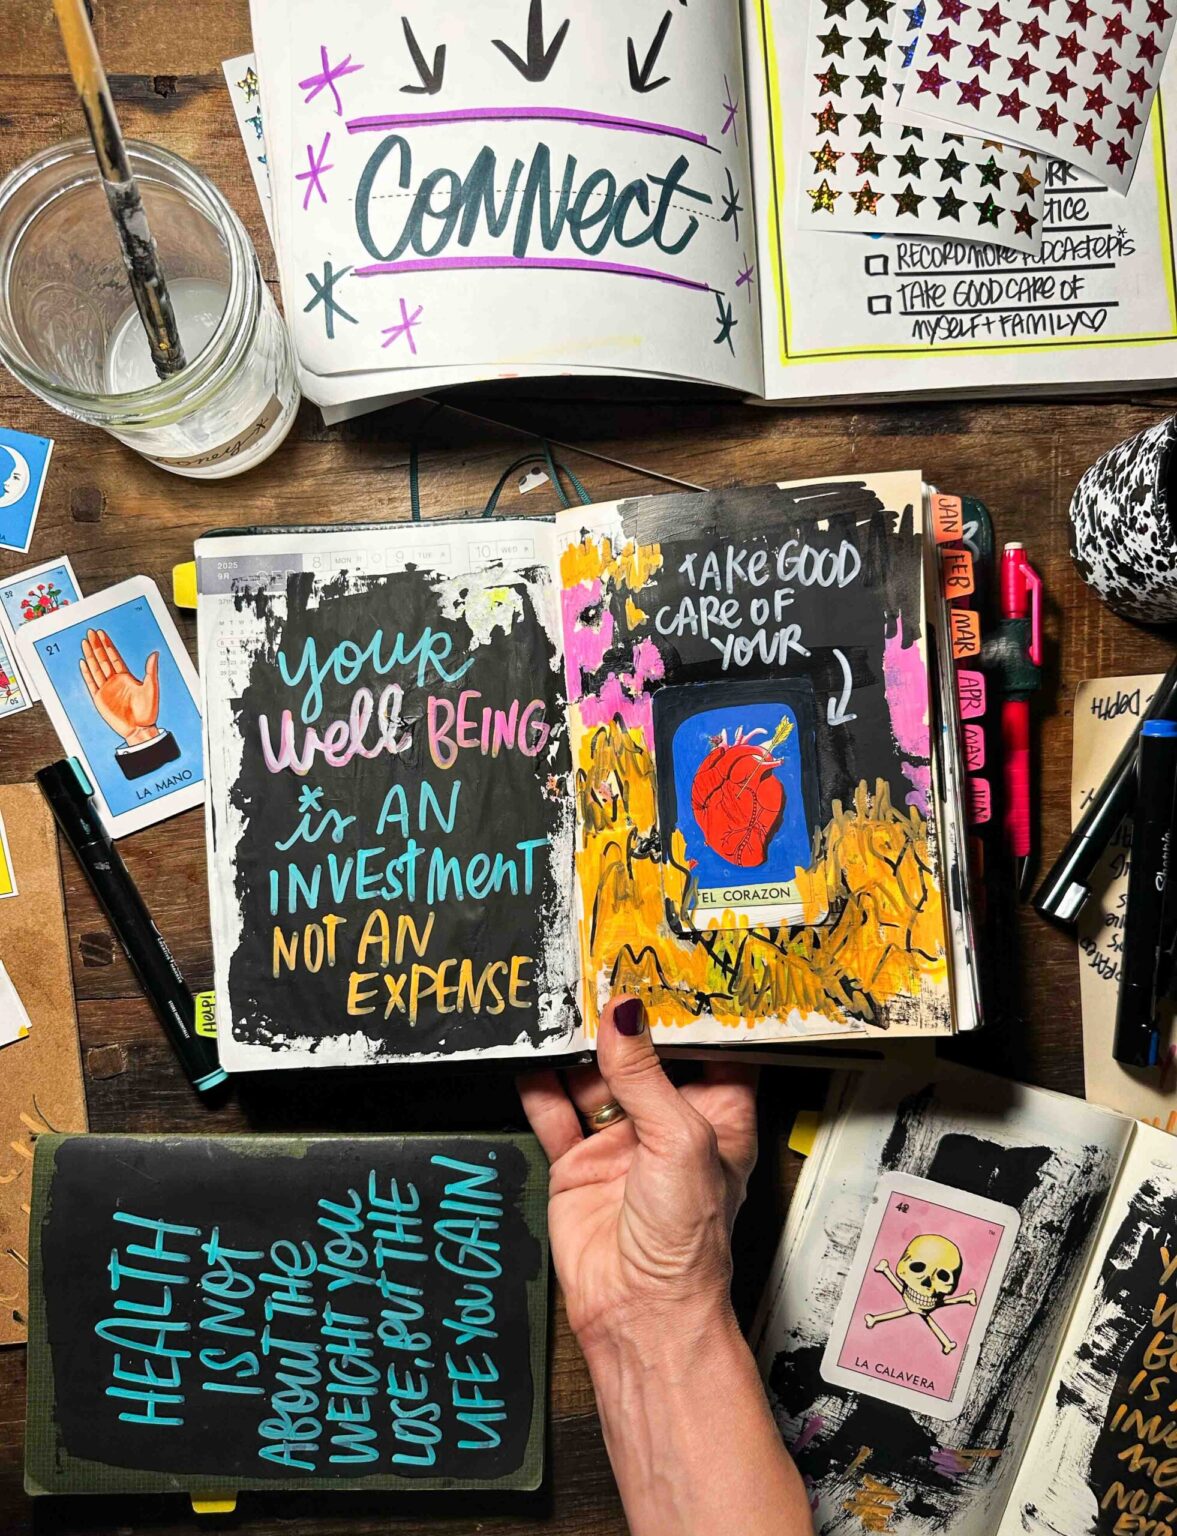 CONNect
RK
ctice
RECORD MORE PODCAST EPIS*
TAKE GOOD CARE OF
MYSELF + FAMILY♡
honey
2025
9月
8 MON
9 TUE
10 WED
YOUR
Well BEING
is AN
INVEStmeNT
NOT AN
EXPENSE
HELP!
TAKE GOOD
CARE OF
YOUR
EL CORAZON
JAN
FEB
MAR
APR
MAY
JUN
21
LA MANO
DEPTH
Sharpie
HEALTH
IS NOt
ABOUT THE
WEIGHT YOU
LOSE, BUT THE
LIFE YOU GAIN.
42
LA CALAVERA
IS A
INVE
me
NOT
EXP